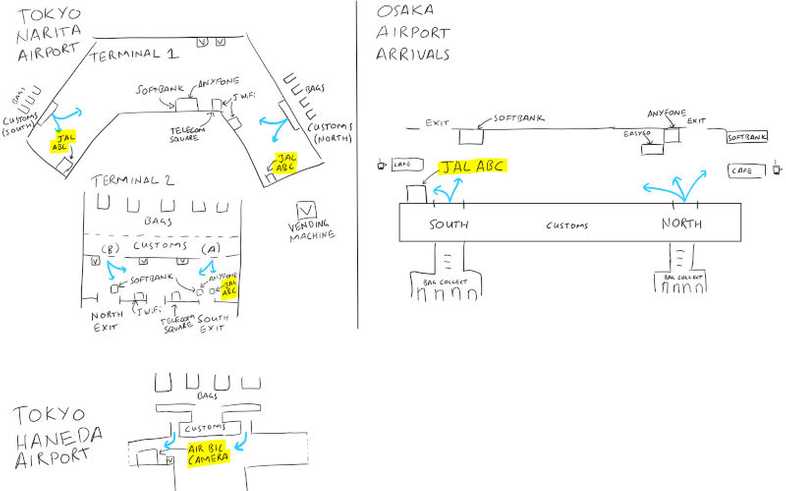 TOKYO
NARITA
AIRPORT
TERMINAL 1
V V
SOFTBANK
ANYFONE
J WiFi
TELECOM
SQUARE
BAGS
CUSTOMS
(SOUTH)
JAL
ABC
BAGS
CUSTOMS
(NORTH)
JAL
ABC
TERMINAL 2
BAGS
V
VENDING
MACHINE
(B) CUSTOMS (A)
V V V
SOFTBANK
ANYFONE
JAL
ABC
NORTH
EXIT
J WiFi
TELECOM
SQUARE
SOUTH
EXIT
TOKYO
HANEDA
AIRPORT
BAGS
CUSTOMS
AIR BIC
CAMERA
V
OSAKA
AIRPORT
ARRIVALS
EXIT
SOFTBANK
ANYFONE
EXIT
EASYGO
SOFTBANK
CAFE
JAL ABC
CAFE
SOUTH
CUSTOMS
NORTH
BAG COLLECT
BAG COLLECT